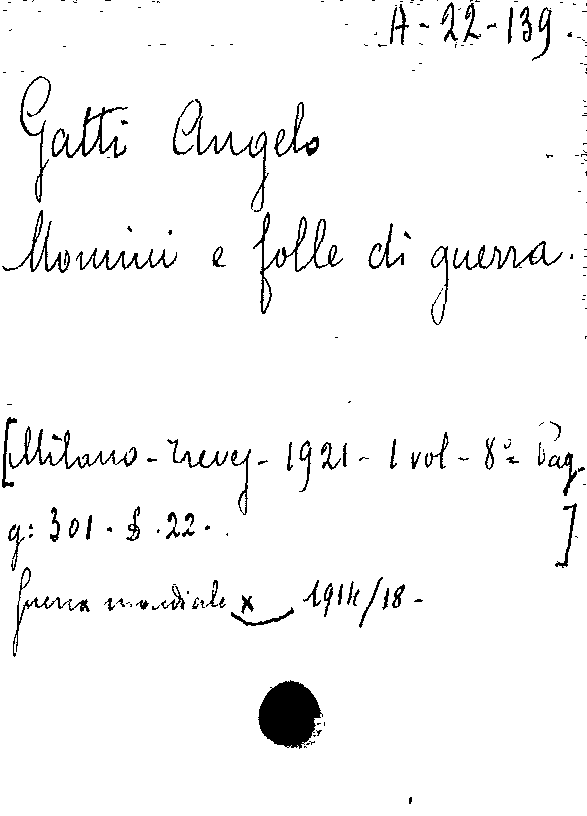 A-22-139.
Gatti Angelo
Uomini e folle di guerra.
[Milano - Treves - 1921 - 1 vol - 8° - Pag.
g: 301. $ .22. ]
Guerra mondiale x 1914/18 -